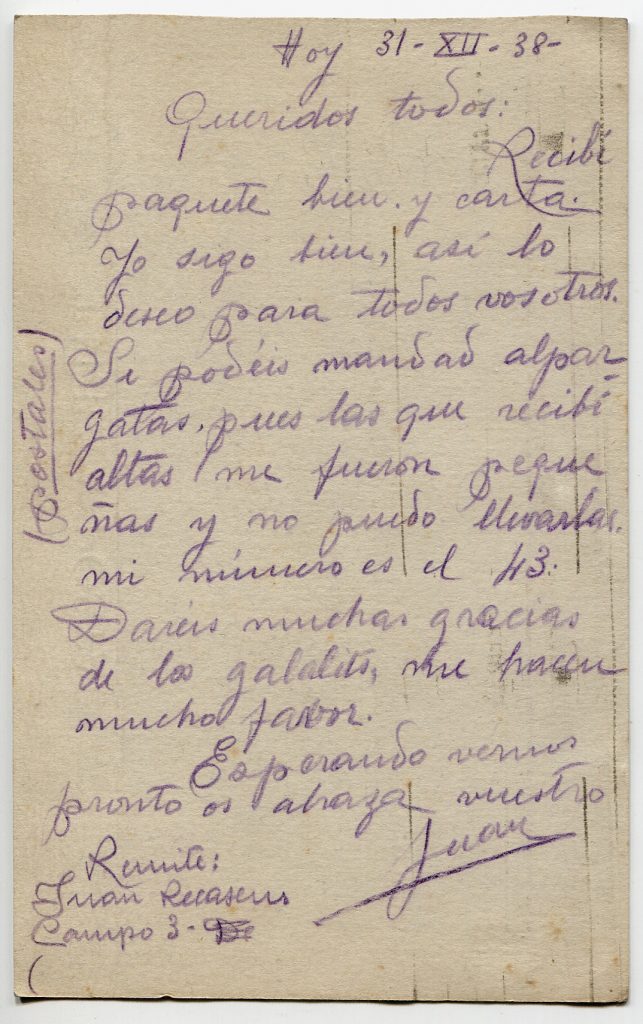 Hoy 31-XII-38-
Queridos todos:
Recibí
paquete bien. y carta.
Yo sigo bien, así lo
deseo para todos vosotros.
Si podéis mandad alpar-
gatas, pues las que recibí
altas me fueron peque
ñas y no puedo llevarlas.
mi número es el 43.
Daréis muchas gracias
de los
me hacen
mucho favor.
Esperando vernos
pronto os abraza vuestro
Juan
Remite:
Juan Recasens
Campo 3-
(postales)